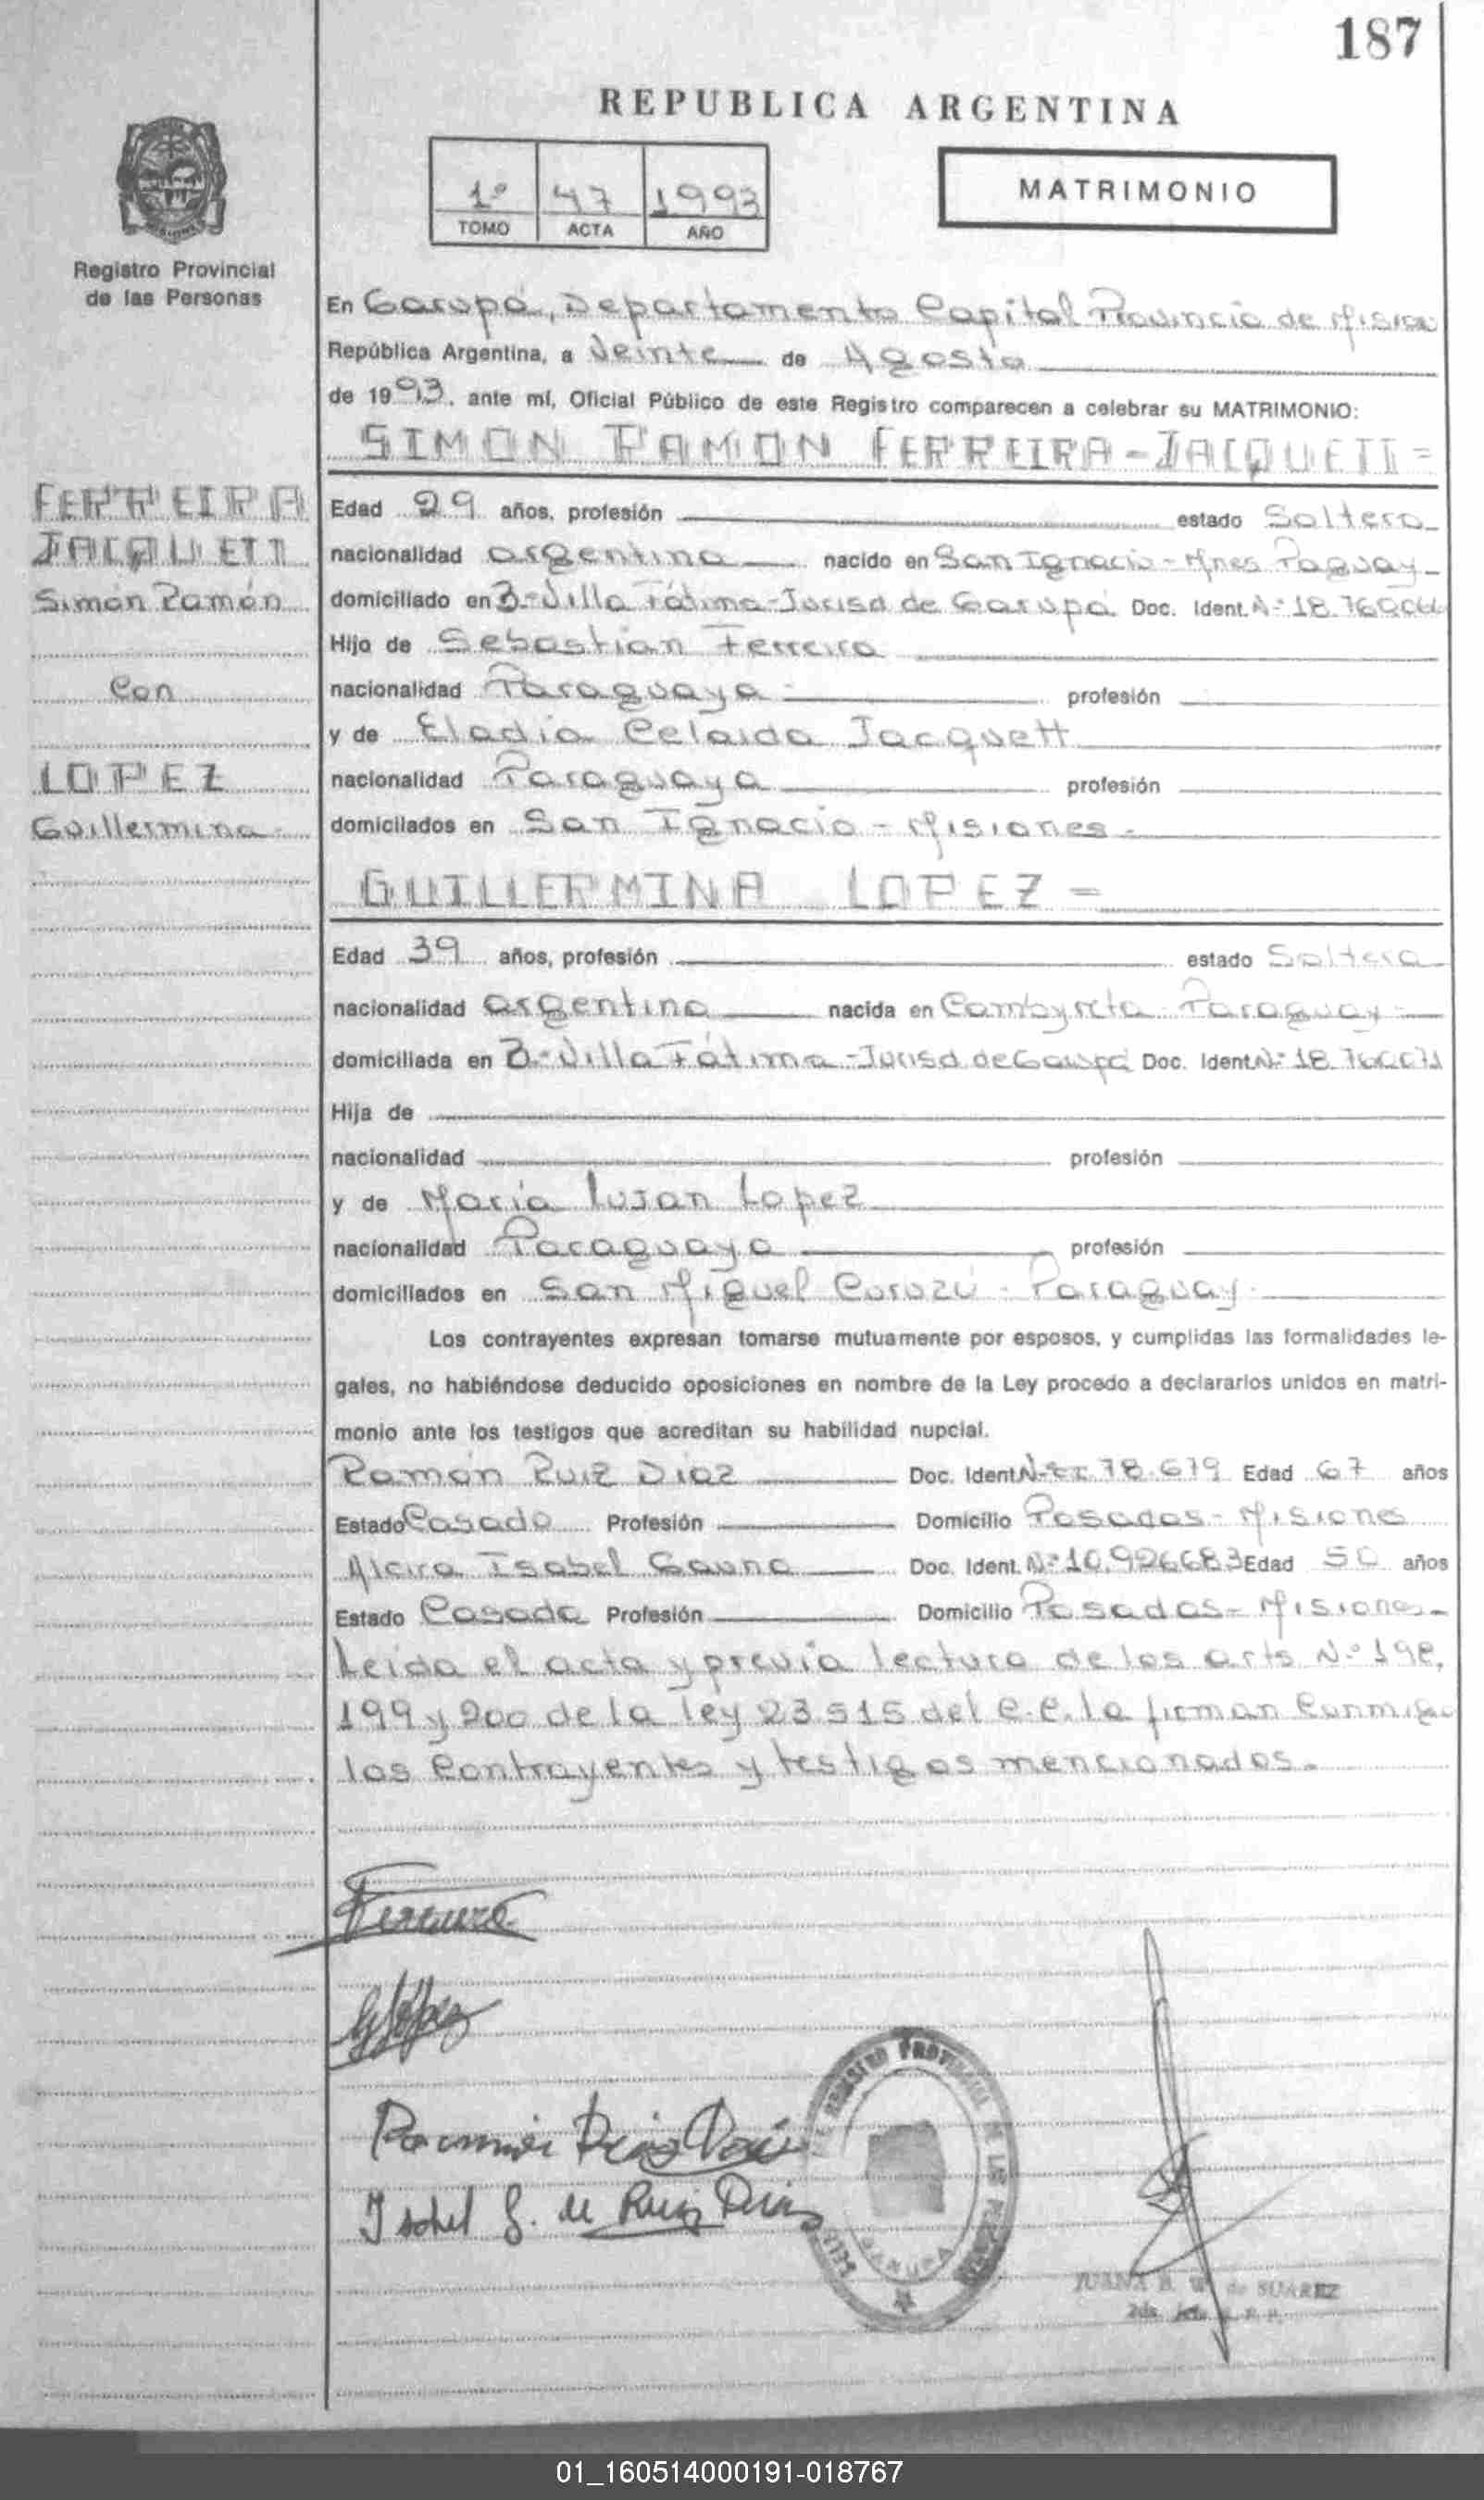 187
REPUBLICA ARGENTINA
1º 47 1993
TOMO ACTA AÑO
MATRIMONIO
Registro Provincial
de las Personas
En Garupá, Departamento Capital Provincia de Mision
República Argentina, a Veinte de Agosto
de 1993. ante mí, Oficial Público de este Registro comparecen a celebrar su MATRIMONIO:
SIMON RAMON FERREIRA-JACQUETT=
FERREIRA
JACQUETT
Simón Ramón
Con
LOPEZ
Guillermina
Edad 29 años, profesión estado Soltero
nacionalidad argentina nacido en San Ignacio - Mnes Paguay
domiciliado en Bº Villa Fátima - Jurisd de Garupá Doc. Ident. Nº 18.760.066
Hijo de Sebastián Ferreira
nacionalidad Paraguaya profesión
y de Eladia Celaida Jacquett
nacionalidad Paraguaya profesión
domiciliados en San Ignacio - Misiones
GUILLERMINA LOPEZ =
Edad 39 años, profesión estado Soltera
nacionalidad argentina nacida en Cambyreta - Paraguay
domiciliada en Bº Villa Fátima - Jurisd de Garupá Doc. Ident. Nº 18.760.071
Hija de
nacionalidad profesión
y de María Lujan Lopez
nacionalidad Paraguaya profesión
domiciliados en San Miguel Curuzú - Paraguay
Los contrayentes expresan tomarse mutuamente por esposos, y cumplidas las formalidades le-
gales, no habiéndose deducido oposiciones en nombre de la Ley procedo a declararlos unidos en matri-
monio ante los testigos que acreditan su habilidad nupcial.
Ramón Ruiz Díaz Doc. Ident. 78.679 Edad 67 años
Estado Casado Profesión Domicilio Posadas - Misiones
Alcira Isabel Gauna Doc. Ident. Nº 10.926683 Edad 50 años
Estado Casada Profesión Domicilio Posadas - Misiones
Leida el acta y previa lectura de los arts Nº 198,
199 y 200 de la ley 23515 del C.C. la firman Conmigo
los Contrayentes y testigos mencionados.
Ferreira
G López
Ramón Ruiz Díaz
Isabel G. de Ruiz Diaz
REGISTRO PROVINCIAL DE LAS PERSONAS
GARUPA
JUANA de SUAREZ
01_160514000191-018767